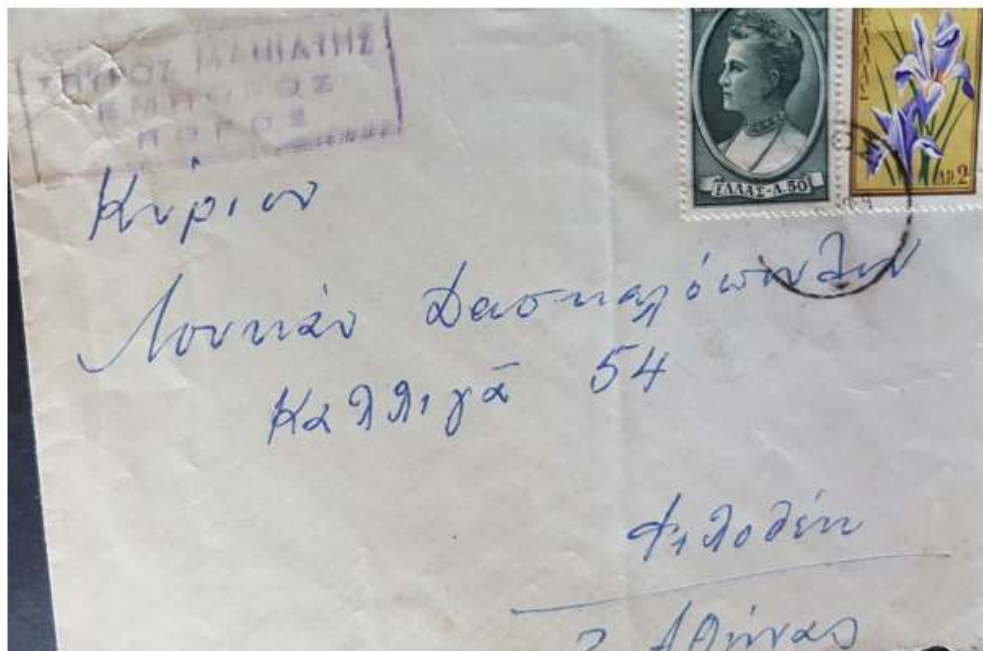 ΕΜΠΟΡΟΣ
ΠΟΡΟΣ
ΕΛΛΑΣ
ΕΛΛΑΣ-Λ.50
ΔΡ.2
Κύριον
Λουκάν Δασκαλόπουλον
Καλλιγᾶ 54
Φιλοθέη
Αθήνας